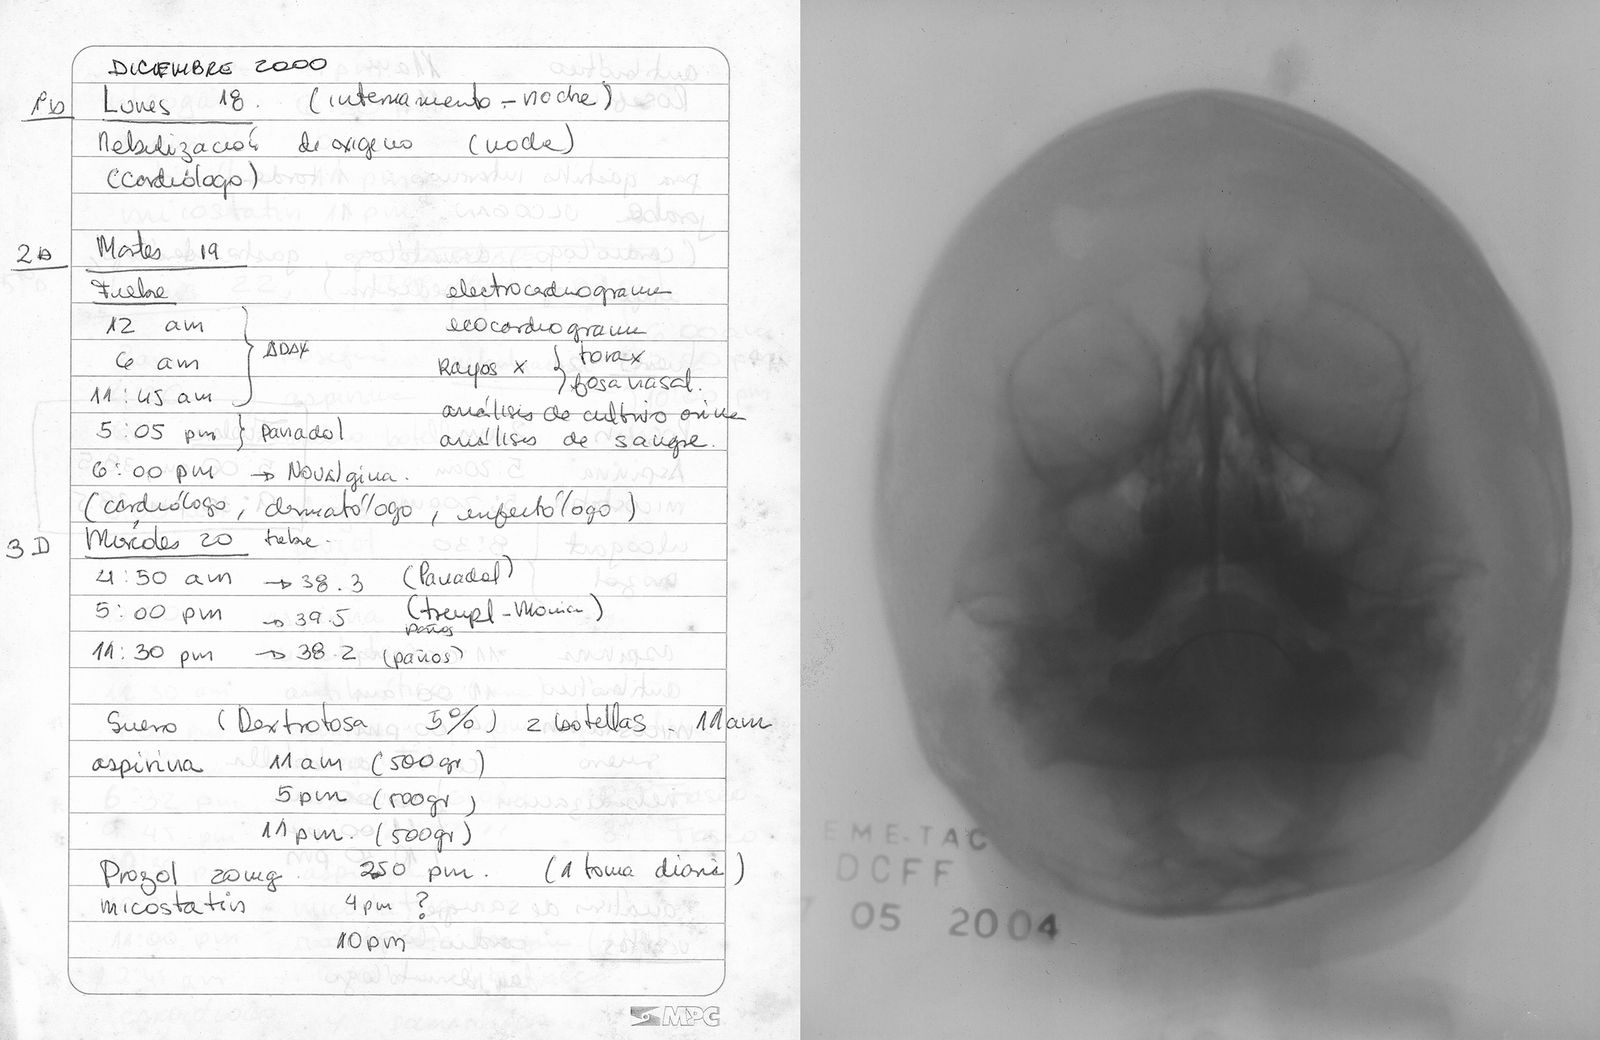 DICIEMBRE 2000
1º D Lunes 18. (internamiento - noche)
Nebulización de oxigeno (noche)
(cardiólogo)
2 D Martes 19
Fiebre electrocardiograma
12 am ecocardiograma
6 am Rayos x { torax
11:45 am fosa nasal.
análisis de cultivo orina
5:05 pm } Panadol análisis de sangre.
6:00 pm → Novalgina.
(cardiólogo, dermatólogo, infectólogo)
3 D Miércoles 20 fiebre.
4:50 am → 38.3 (Panadol)
5:00 pm → 39.5
paños
11:30 pm → 38.2 (paños)
Suero (Dextrotosa 5%) 2 botellas - 11am
aspirina 11 am (500gr)
5 pm (500gr)
11 pm. (500gr)
Prozol 20mg. 250 pm. (1 toma diaria)
micostatin 4 pm ?
10 pm
MPC
EME-TAC
DCFF
05 2004